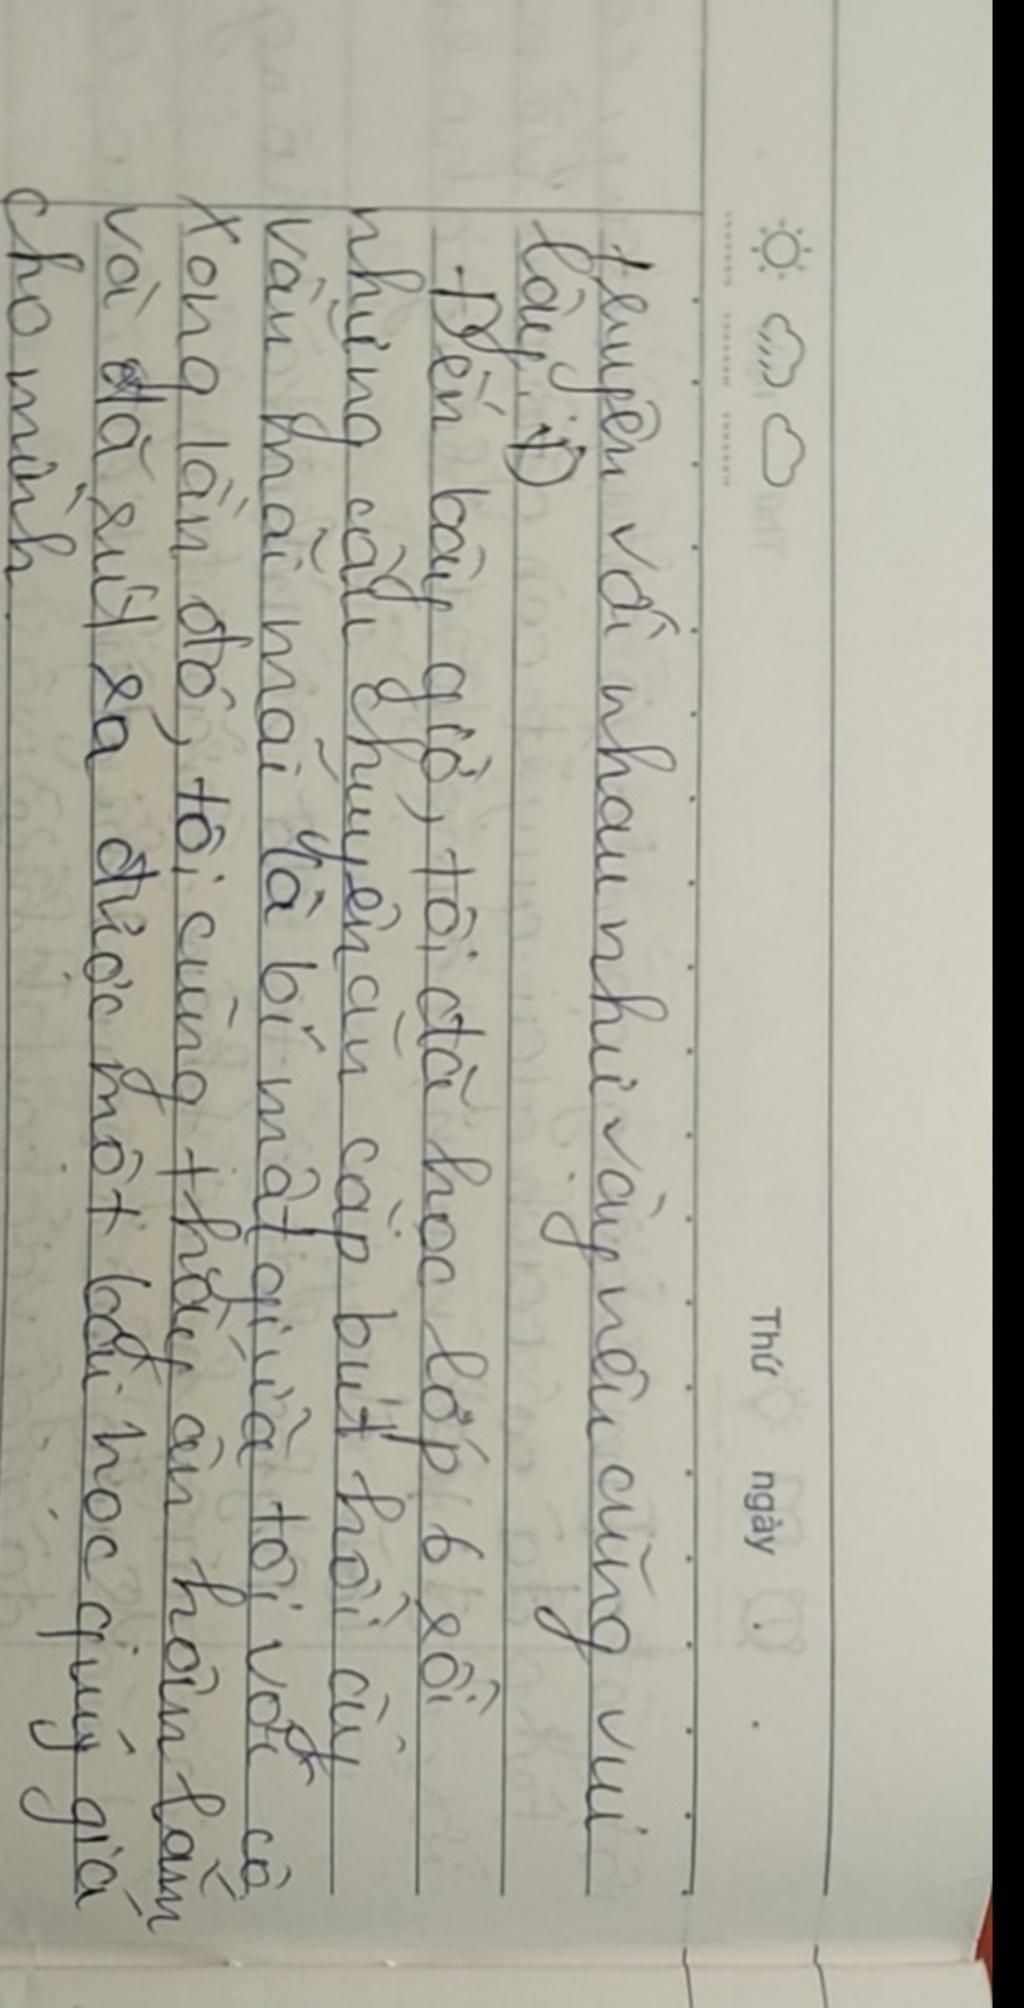 Thứ ngày
truyện với nhau như vậy nếu cũng vui
lây :D
Đến bây giờ, tôi đã học lớp 6 rồi
nhưng câu chuyện ăn cắp bút hồi ấy
vẫn mãi mãi là bí mật giữa tôi với cô
Xong lần đó, tôi cũng thấy ân hận lắm
và đã rút ra được một bài học quý giá
cho mình.